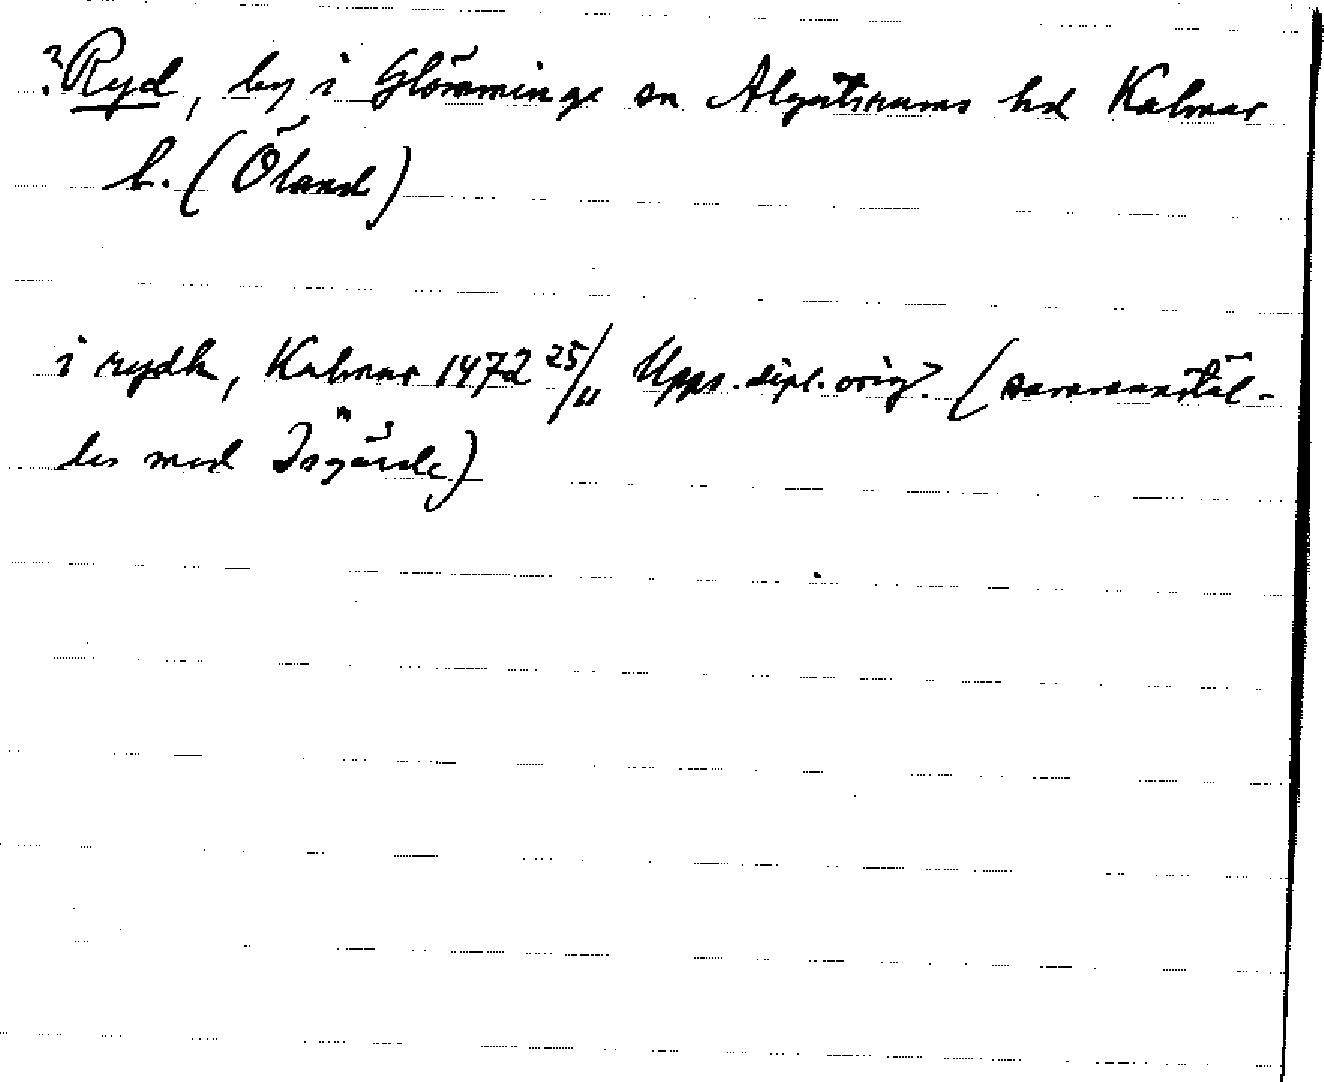 ? Ryd, by i Glömminge sn Algutsrums hd Kalmar
l. (Öland)
i rydh, Kalmar 1472 25/11 Upps. dipl. orig. (sammanstäl-
les med Isgärde)